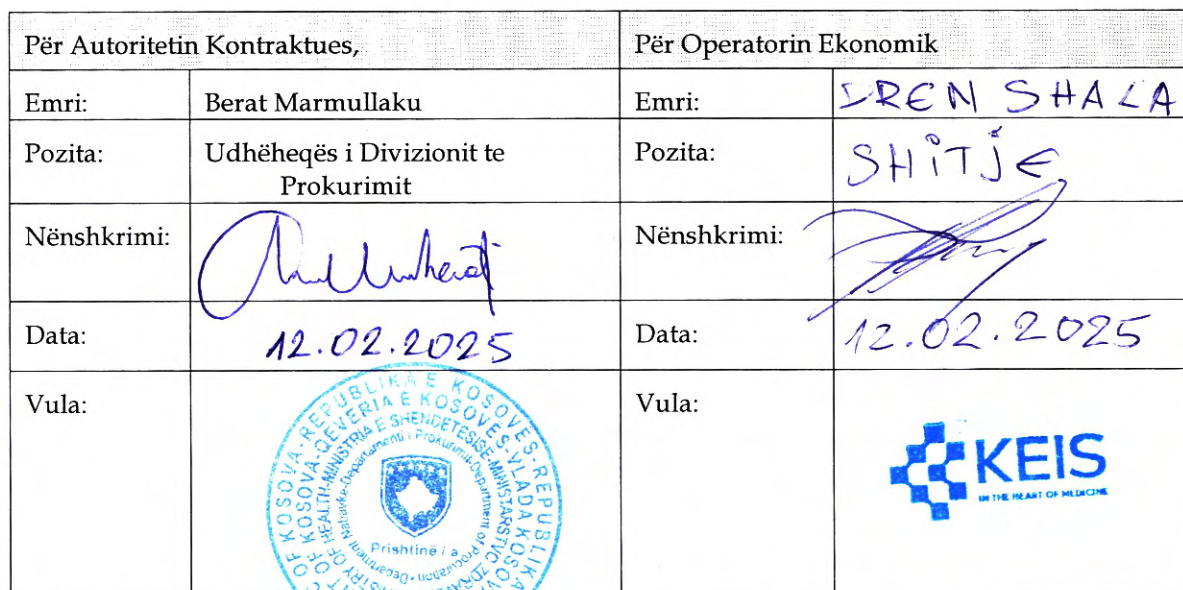 Për Autoritetin Kontraktues,
Për Operatorin Ekonomik
Emri: Berat Marmullaku
Emri: DREN SHALA
Pozita: Udhëheqës i Divizionit te
Prokurimit
Pozita: SHiTJE
Nënshkrimi:
Nënshkrimi:
Data: 12.02.2025
Data: 12.02.2025
Vula:
REPUBLIKA E KOSOVËS-REPUBLIKA
OF KOSOVA-QEVERIA E KOSOVËS-VLADA KOSOVA
OF HEALTH-MINISTRIA E SHENDETESISE-MINISTARSTVO
Departamenti i Prokurimit-Department of
Prishtinë / a
Vula:
KEIS
IN THE HEART OF MEDICINE